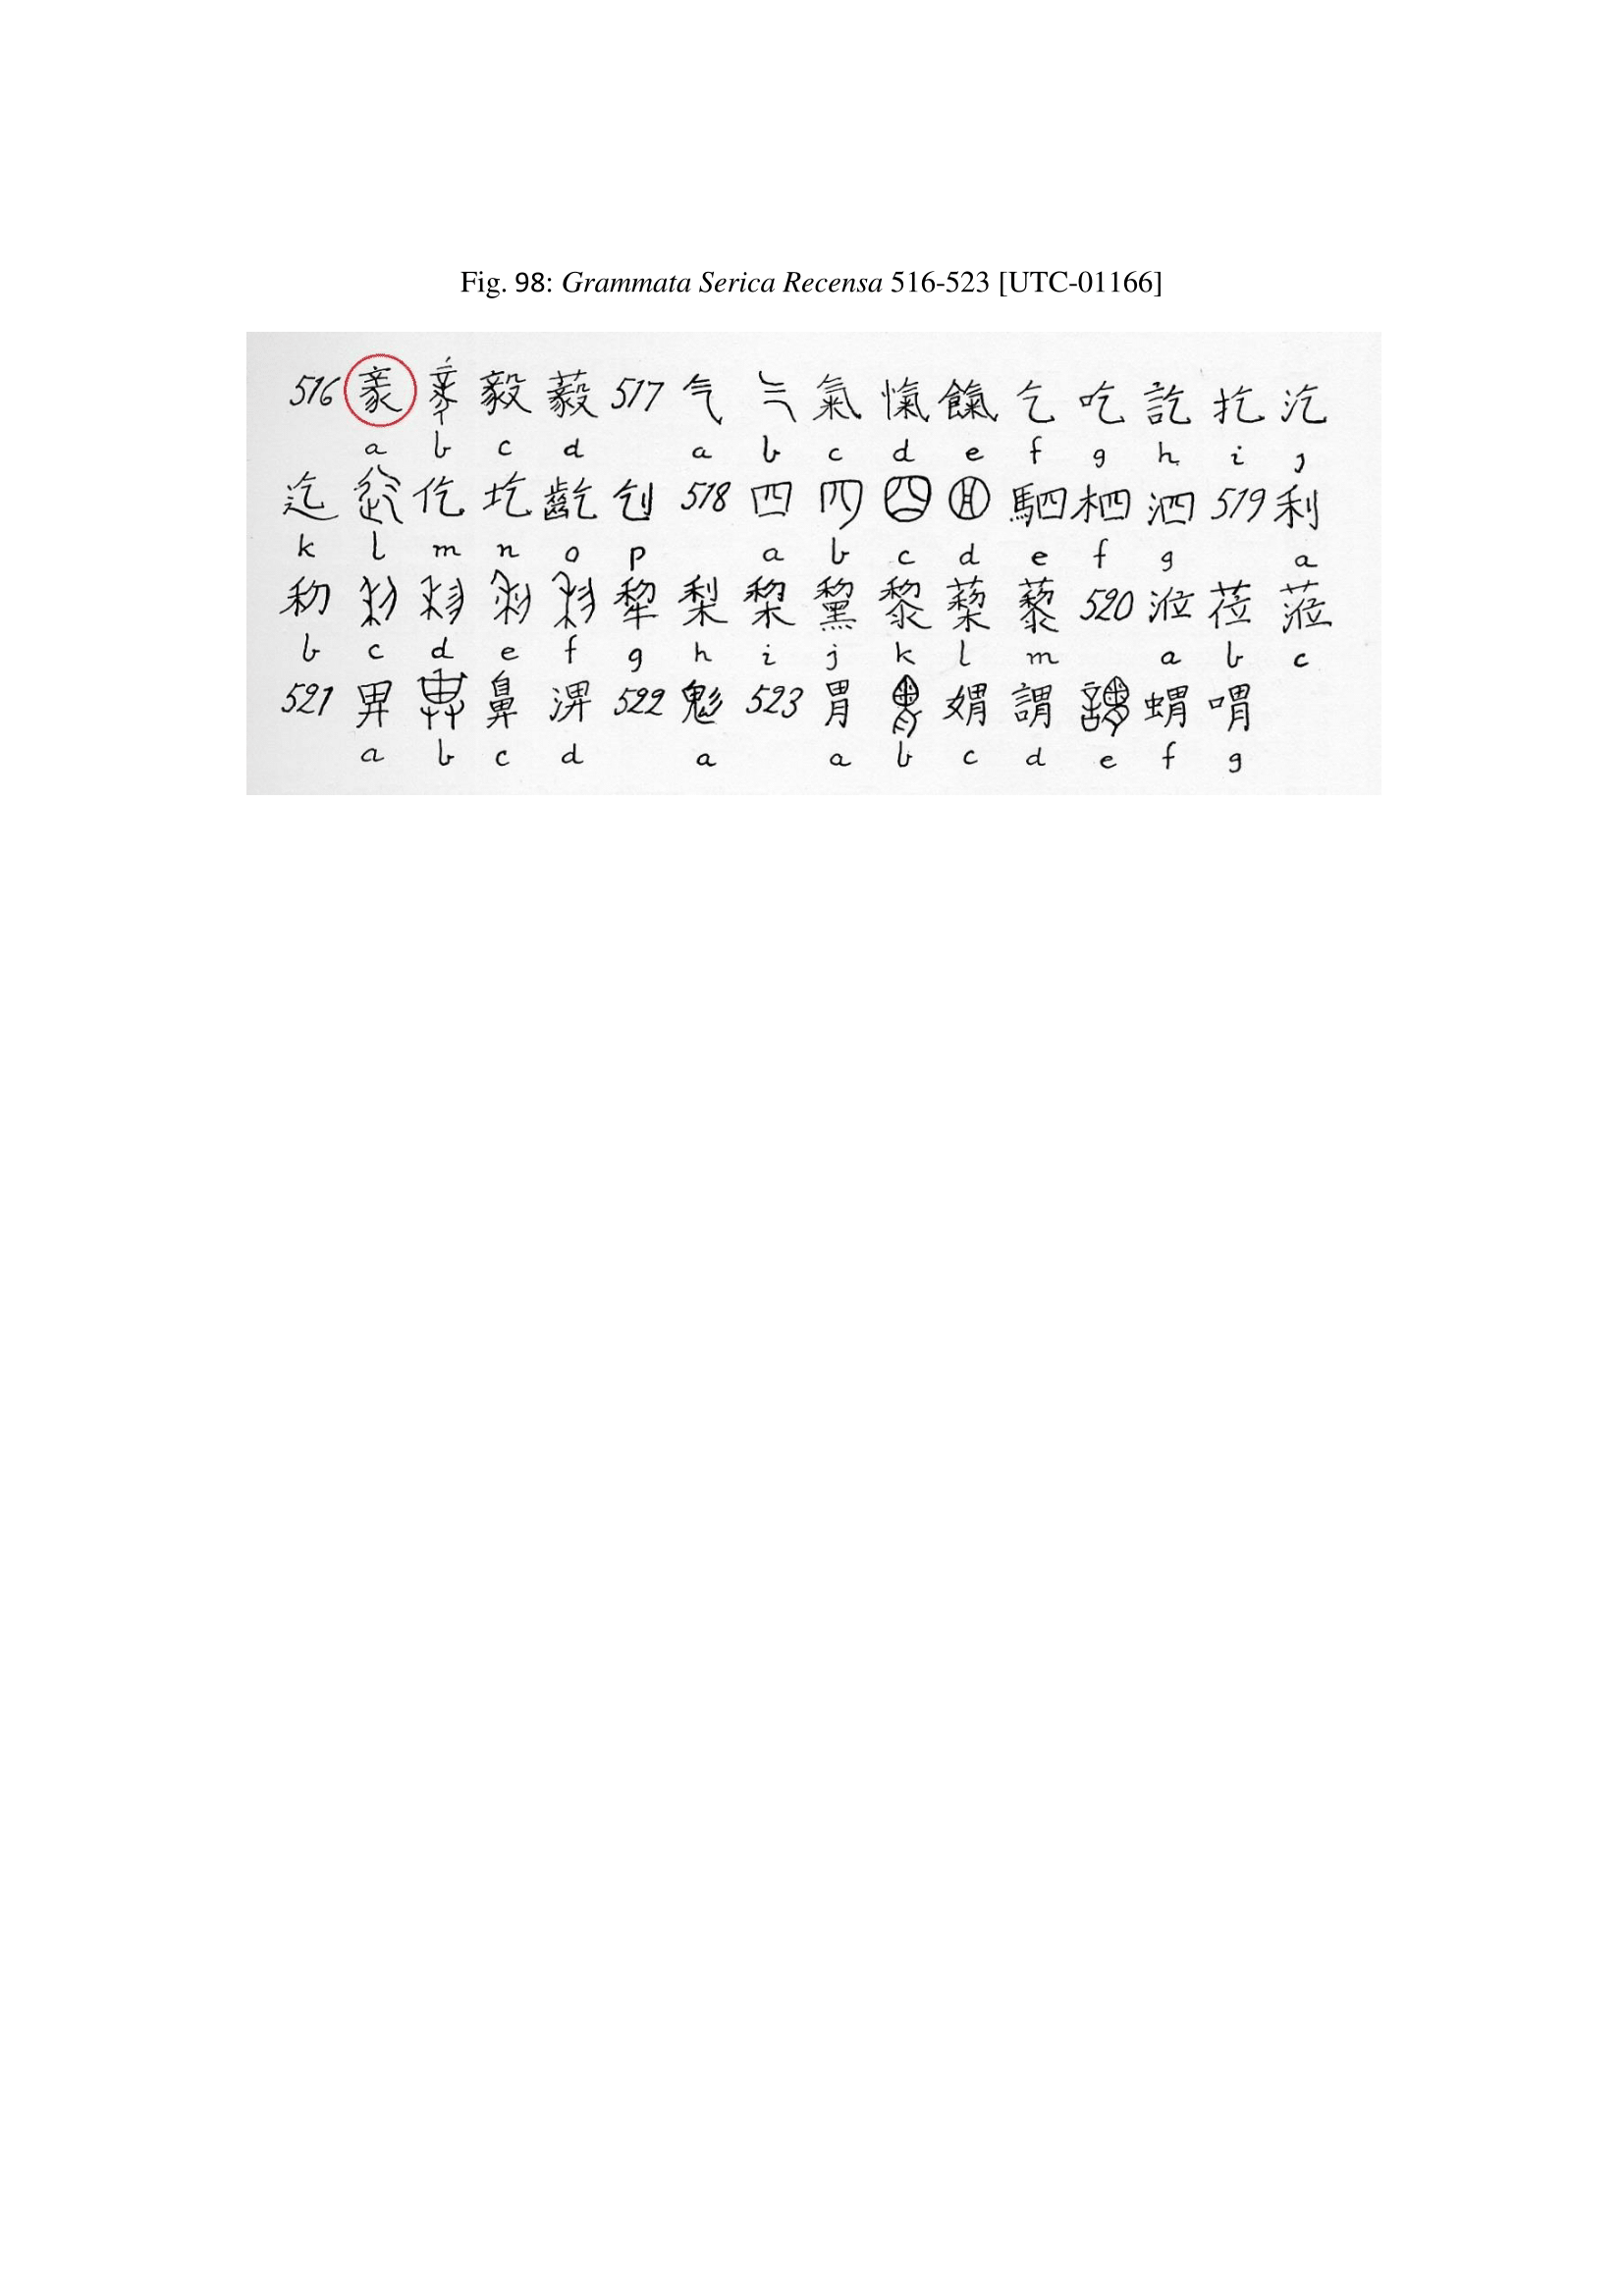 Fig. 98: Grammata Serica Recensa 516-523 [UTC-01166]
516 豙 毅 藙 517 气 氣 愾 餼 乞 吃 訖 扢 汔
a b c d a b c d e f g h i j
迄 仡 圪 齕 刏 518 四 駟 柶 泗 519 利
k l m n o p a b c d e f g a
犂 梨 棃 黎 蔾 藜 520 涖 莅 蒞
b c d e f g h i j k l m a b c
521 畀 鼻 淠 522 鬽 523 胃 媦 謂 蝟 喟
a b c d a a b c d e f g